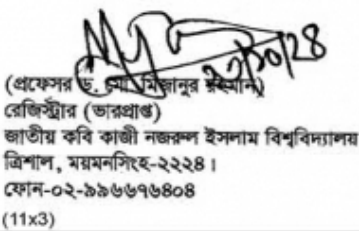 ২৩/১০/২৪
(প্রফেসর ড. মো. মিজানুর রহমান)
রেজিস্ট্রার (ভারপ্রাপ্ত)
জাতীয় কবি কাজী নজরুল ইসলাম বিশ্ববিদ্যালয়
ত্রিশাল, ময়মনসিংহ-২২২৪।
ফোন-০২-৯৯৬৬৭৬৪০৪
(11x3)